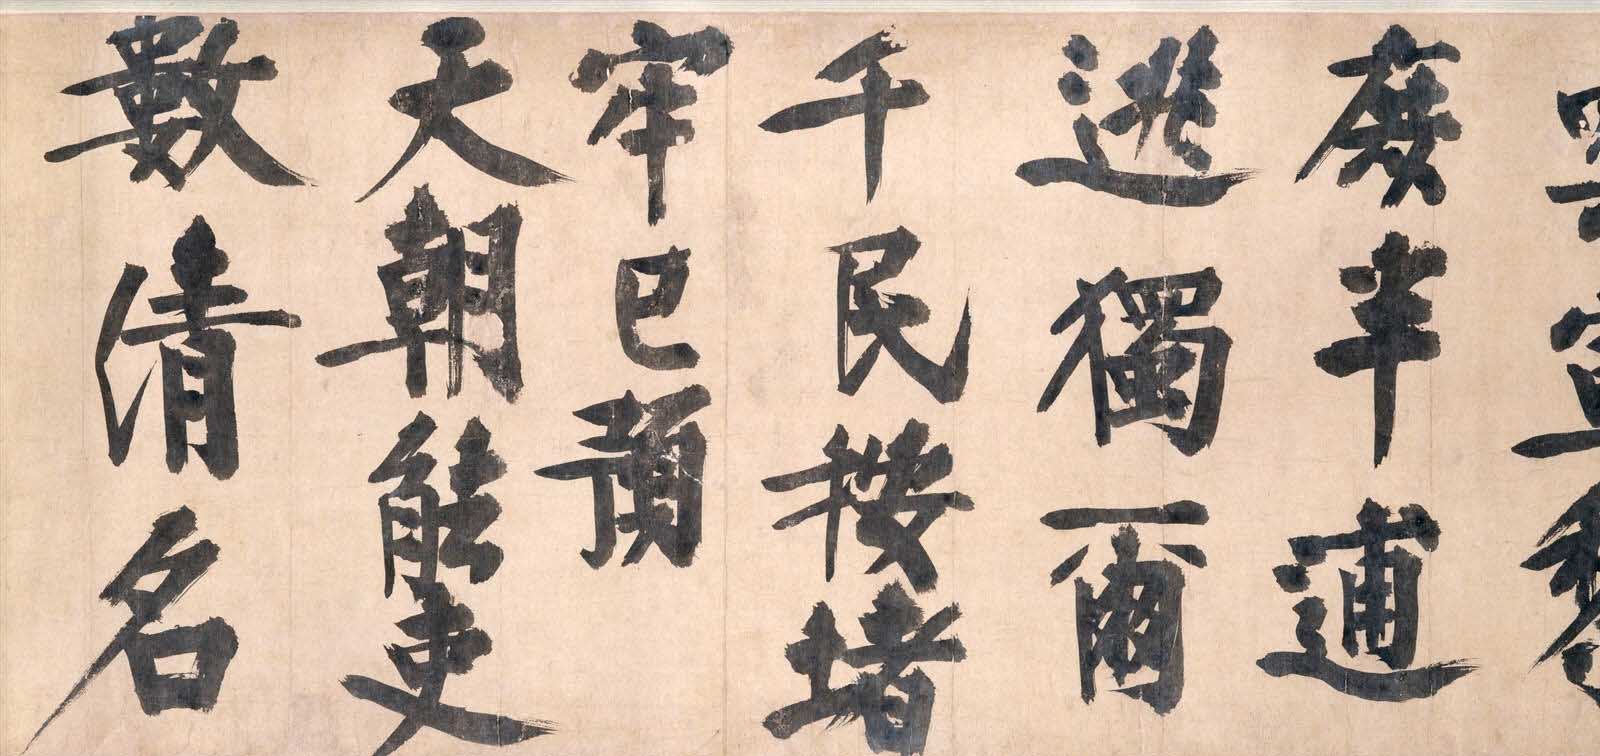 廢半逋
逃獨爾
千民按堵
牢已頳
天朝能吏
數清名